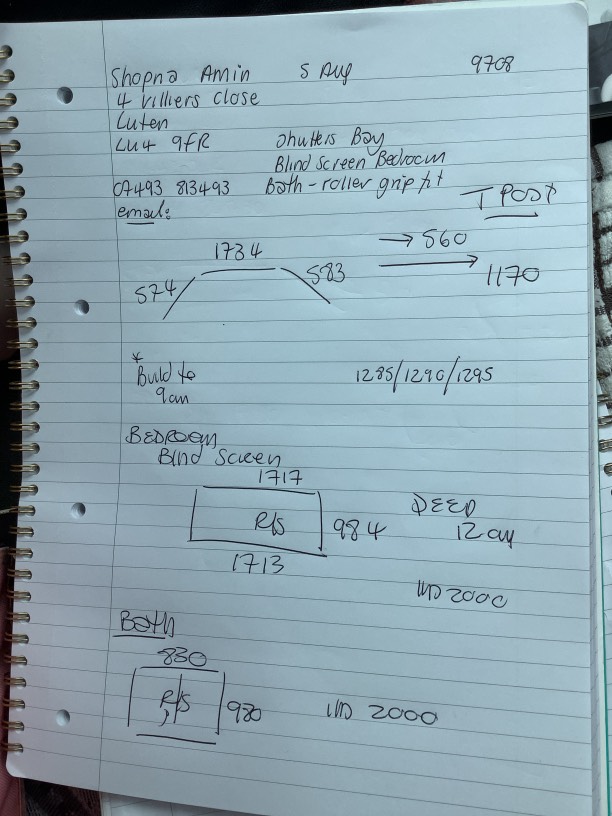 Shopna Amin 5 Aug 9708
4 Villiers close
Luten
LU4 9FR Shutters Bay
Blind Screen Bedroom
07493 813493 Bath - roller grip fit
email: T POST
1734 → 560
574 583 → 1170
* Build to 1285/1290/1295
9am
BEDROOM
Blind Screen
1717 DEEP
R/S 984 12 cm
1713
WD 2000
Bath
830
R/S 980 WD 2000